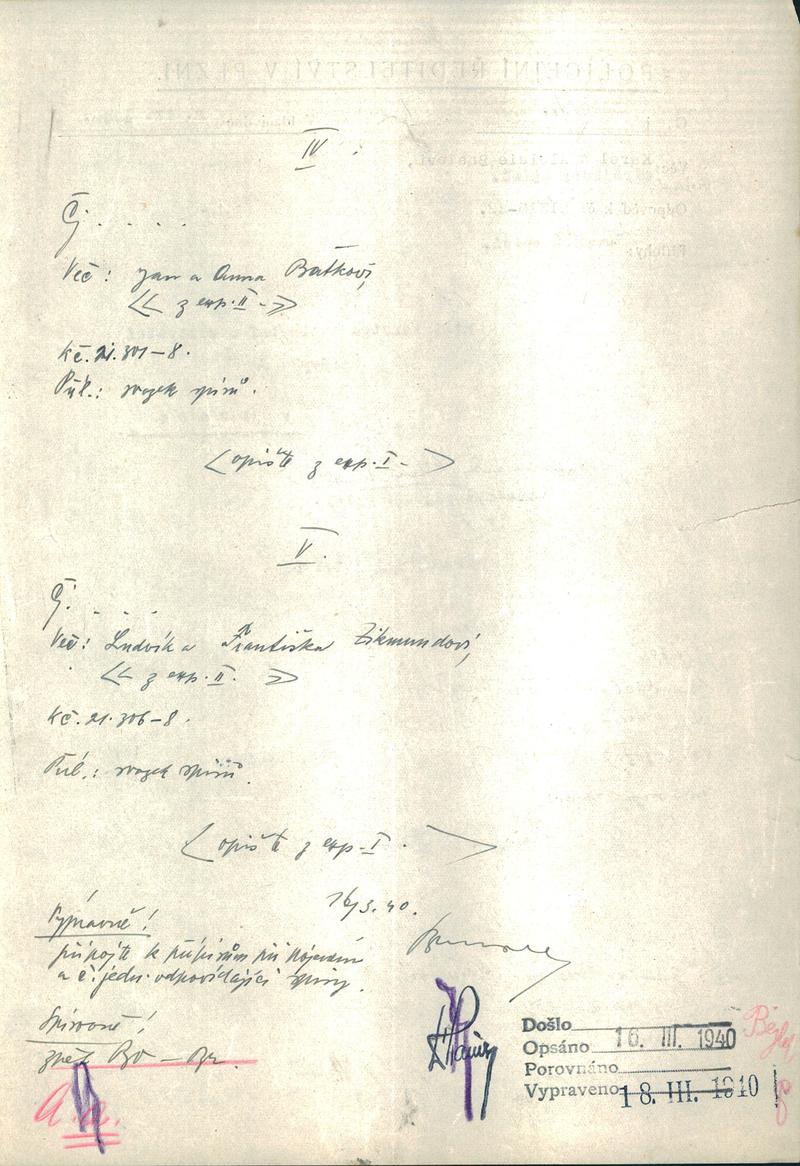 IV.
Čj. . . . .
Věc: Jan a Anna Baťkovi,
<< z exp. II. >>
kč. 21.301-8.
Příl.: svazek spisů.
<opiště z exp. I. >
V.
Čj. . . .
Věc: Ludvík a Františka Zikmundovi,
<< z exp. II. >>
kč. 21.306-8.
Příl.: svazek spisů.
<opiště z exp. I. >
16/3. 40.
Výpravně!
připojte k přípisům při
a č. jedn. odpovídající spisy.
Spisovně!
zpět
A.a.
Došlo
Opsáno 16. III. 1940
Porovnáno
Vypraveno 18. III. 1940